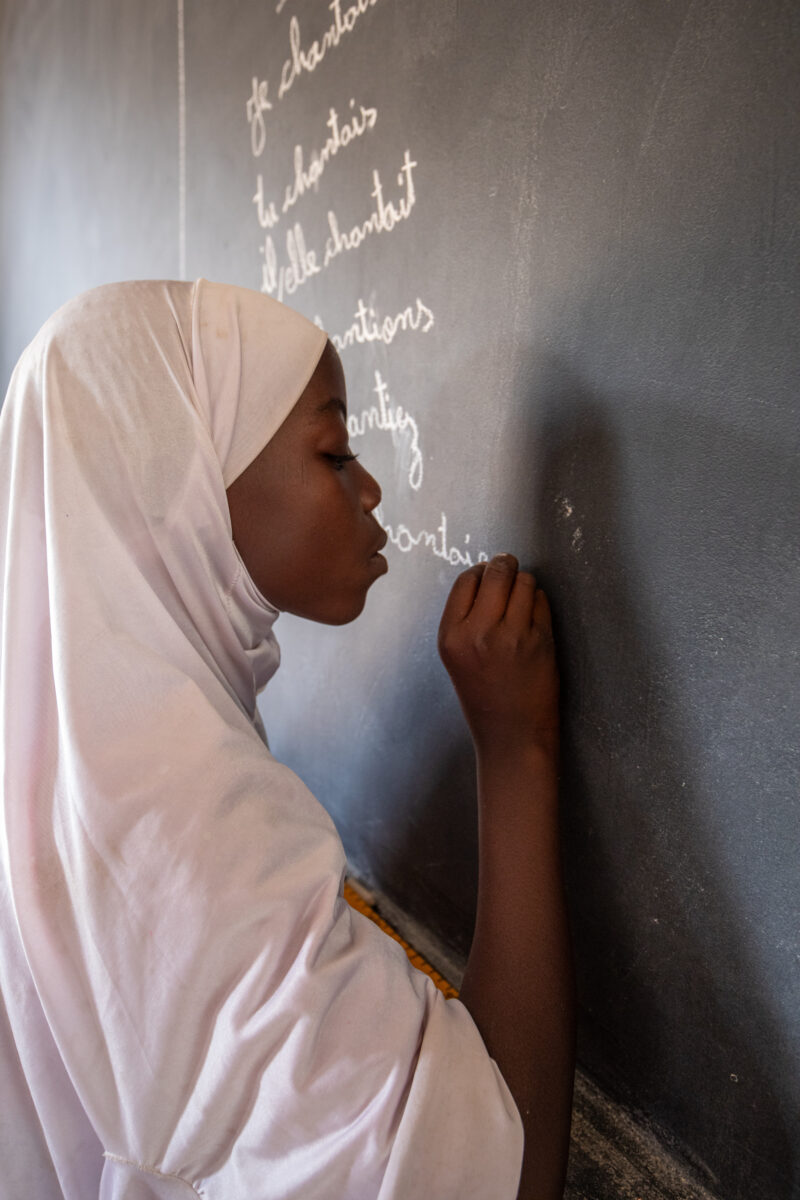 je chantais
tu chantais
il/elle chantait
antions
antiez
chantaie